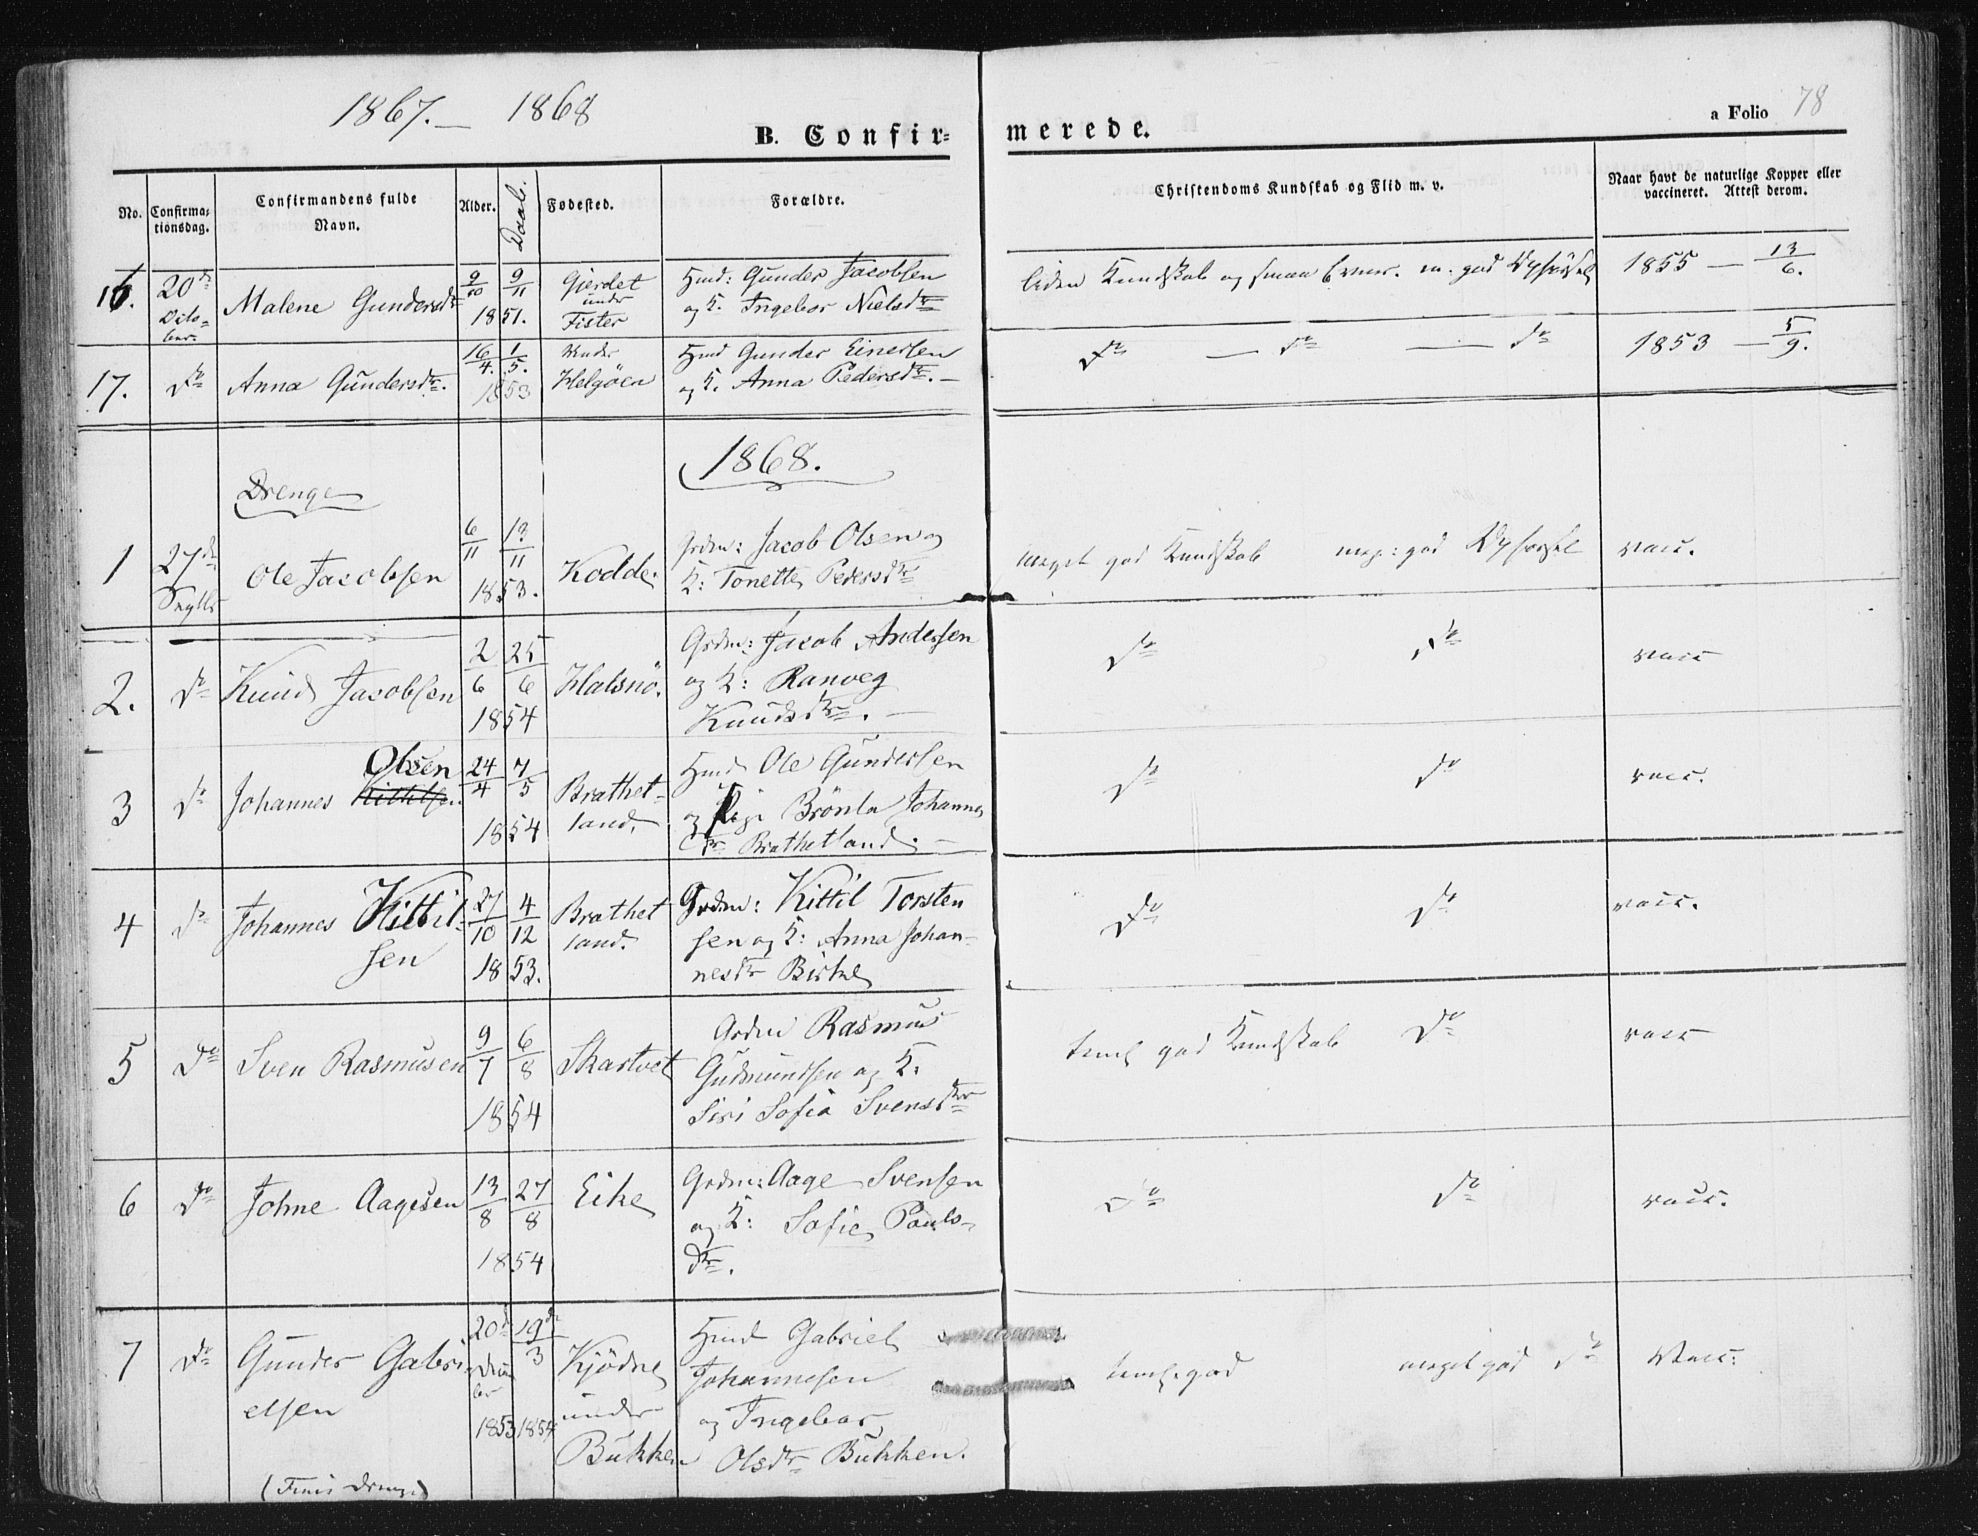 1867. — 1868
B. Confir= merede.
a Folio 78
No. Confirma=tionsdag. Confirmandens fulde Navn. Alder. Daab. Fødested. Forældre. Christendoms Kundskab og Flid m. v. Naar havt de naturlige Kopper eller vaccineret. Attest derom.
16. 20de Octo-ber Malene Gundersdtr 9/10 9/11 1851. Gjerdet under Fister Hmd: Gunder Jacobsen
og K. Ingebor Nielsdtr
liden Kundskab og smaa Evner. m. god Opførsel 1855 — 13/6.
17. Do Anna Gundersdtr. 16/4. 1/5. 1853 under Helgøen Hmd Gunder Einersen
og K. Anna Pedersdtr. —
Do — do — do 1853 — 5/9.
1868.
Drenge
1 27de Ole Jacobsen 6/11 13/11 1853. Kodde. Grdm: Jacob Olsen og
K: Tonette Pedersdtr
meget god Kundskab meg: god Opførsel vacc.
2. Do Knud Jacobsen 2/6 25/6 1854 Halsnø. Grdm: Jacob Andersen
og K: Ranveg
Knudsdtr. —
Do do vacc
3 Do Johannes Olsen Kittilsen 24/4 7/5 1854 Brathet-land. Hmd Ole Gundersen
og Pige Brønla Johannes
dtr Brathetland. —
Do do vacc.
4 Do Johannes Kittil-sen 27/10 4/12 1853. Brathet land. Grdm: Kittil Torsten
sen og K: Anna Johan-
nesdtr Birke
Do do vacc.
5 Do Sven Rasmusen 9/7 6/8 1854 Skartvet Grdm Rasmus
Gudmundsen og K:
Siri Sofia Svensdtr
teml god Kundskab Do vacc
6 Do Johne Aagesen 13/8 27/8 1854 Eike Grdm: Aage Svensen
og K: Sofie Pauls-
dtr.
Do do vacc.
7 Do Gunder Gabri-elsen 20de 1853 19de/3 1854 Kjødne under Bukken Hmd Gabriel
Johannesen
og Ingebor
Olsdtr Bukken.
teml. god meget god do Vacc.
(Finis Drenge)